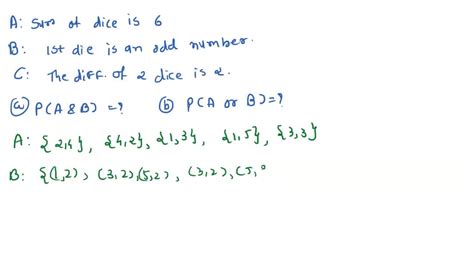 A: Sum of dice is 6
B: 1st die is an odd number.
C: The diff. of 2 dice is 2.
ⓐ P(A & B) = ? ⓑ P(A or B) = ?
A: {2,4}, {4,2}, {1,3}, {1,5}, {3,3}
B: {(1,2), (3,2), (5,2), (3,2), (5,